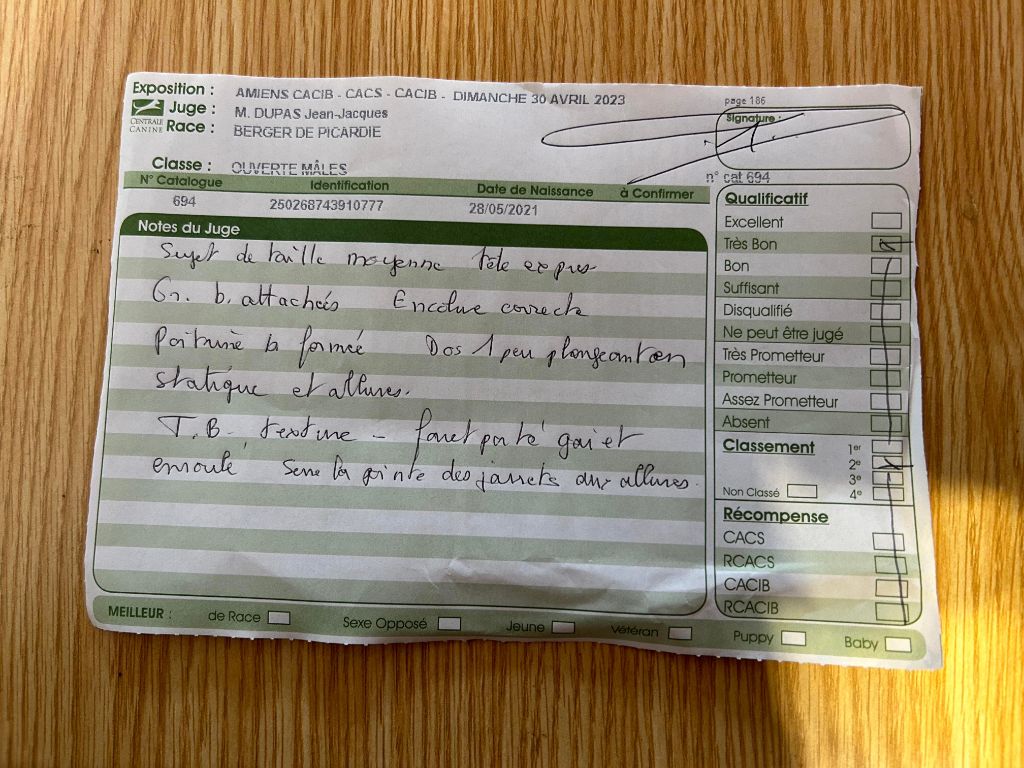 Exposition : AMIENS CACIB - CACS - CACIB - DIMANCHE 30 AVRIL 2023
page 186
CENTRALE CANINE
Juge : M. DUPAS Jean-Jacques
Signature :
Race : BERGER DE PICARDIE
Classe : OUVERTE MÂLES
n° cat 694
N° Catalogue Identification Date de Naissance à Confirmer
694 250268743910777 28/05/2021
Notes du Juge
Sujet de taille moyenne tête
b. attachées Encolure correcte
Poitrine b formée Dos 1 peu plongeant en
statique et allures.
T.B. texture - fouet porté gai et
enroulé Serre la pointe des jarrets aux allures.
Qualificatif
Excellent
Très Bon
Bon
Suffisant
Disqualifié
Ne peut être jugé
Très Prometteur
Prometteur
Assez Prometteur
Absent
Classement 1er
2e
3e
Non Classé 4e
Récompense
CACS
RCACS
CACIB
RCACIB
MEILLEUR : de Race Sexe Opposé Jeune Vétéran Puppy Baby